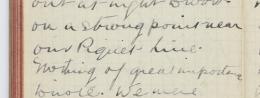 out at night
on a strong point near
our Piquet line.
Nothing of great importance
We were